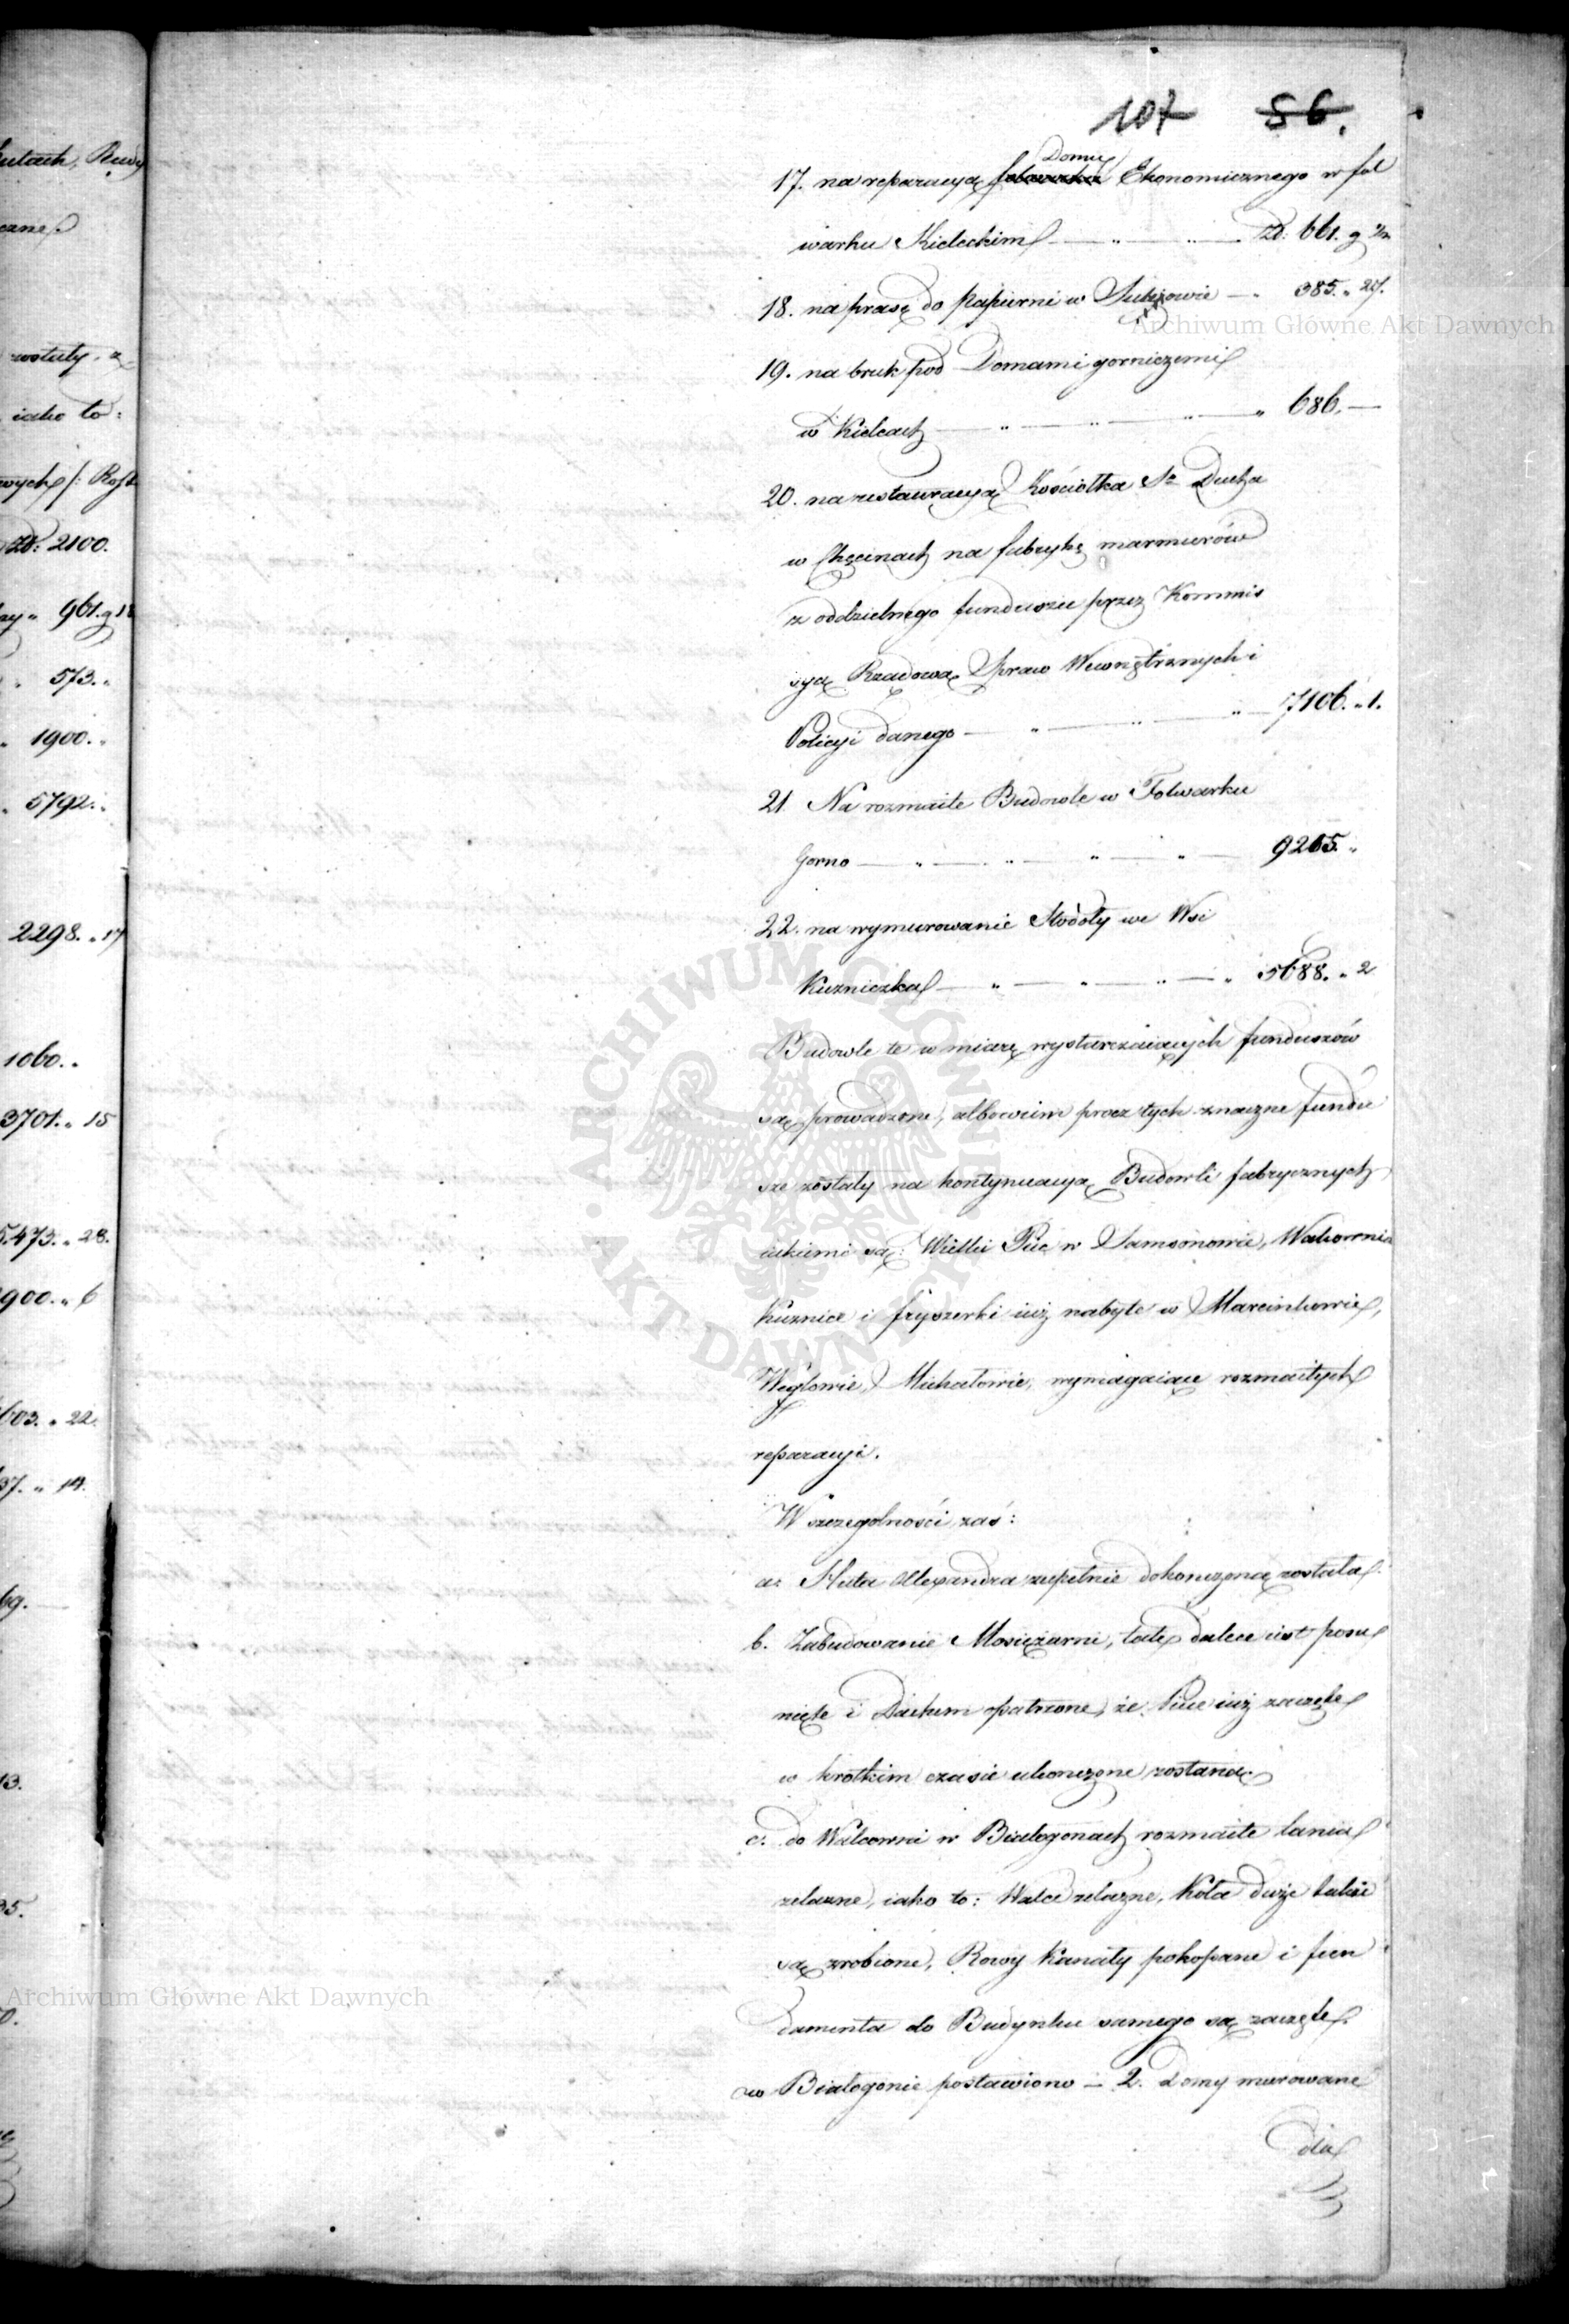 107 86.
17. na reparacyą Domu Ekonomicznego w fol
warku Kieleckim — „ — „ — Zł. 661. g
18. na prasę do Papierni w — „ 385. „ 27.
19. na bruk pod Domami gorniczemi
w Kielcach — „ — „ — „ — „ 686. —
20. na restauracyą Kościołka Sgo Ducha
w Chęcinach na fabrykę marmurów
z oddzielnego funduszu przez Kommis
syą Rządową Spraw Wewnętrznych i
Policyi danego — „ — „ — „ — 7106. „ 1.
21. Na rozmaite Budowle w Folwarku
Gorno — „ — „ — „ — „ — 9265. „
22. na wymurowanie Stodoły we Wsi
Kuzniczka — „ — „ — „ — „ 5688. „ 2
Budowle te w miarę wystarczaiących funduszów
są prowadzone, albowiem procz tych znaczne fundu
sze zostały na kontynuacyą Budowli fabrycznych
iakiemi są: Wielki Piec w Samsonowie, Walcownia
Kuznice i fryszerki iuż nabyte w Marcinkowie,
Węglowie, Michałowie, wymagaiące rozmaitych
reparacyi.
W szczegolności zaś:
a. Huta Alexandra zupełnie dokonczoną została.
b. Zabudowanie Mosiężarni, tak dalece iest posu
nięte i Dachem opatrzone, że Piece iuż zaczęte
w krotkim czasie ukonczone zostaną.
c. do Walcowni w Białogonach rozmaite lania
zelazne, iako to: Walce zelazne, Koła duże także
są zrobione, Rowy Kanały pokopane i fun
damenta do Budynku samego są zaczęte.
w Białogonie postawiono — 2. Domy murowane
dla
Archiwum Główne Akt Dawnych
Archiwum Główne Akt Dawnych
ARCHIWUM GŁÓWNE AKT DAWNYCH
Zł: 2100.
961. g 18
573. „
1900. „
5792. „
2298. „ 17
1060. „
3701. „ 15
473. „ 28.
900. „ 6
603. „ 22.
37. „ 14.
69.
13.
35.